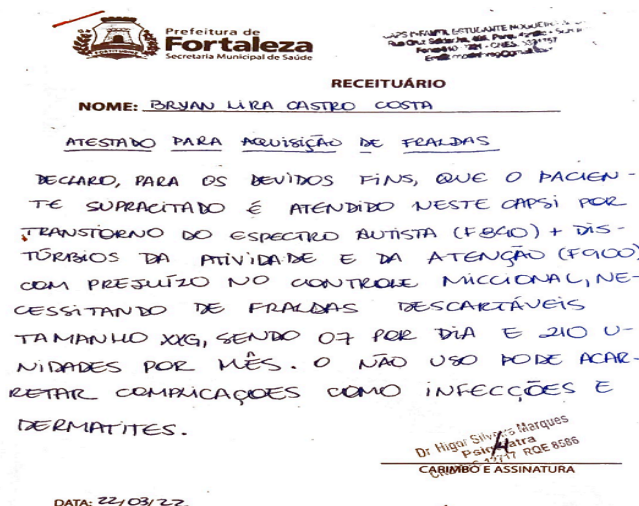 Prefeitura de
Fortaleza
Secretaria Municipal de Saúde
RECEITUÁRIO
NOME: BRYAN LIRA CASTRO COSTA
ATESTADO PARA AQUISIÇÃO DE FRALDAS
DECLARO, PARA OS DEVIDOS FINS, QUE O PACIEN-
TE SUPRACITADO É ATENDIDO NESTE CAPSI POR
TRANSTORNO DO ESPECTRO AUTISTA (F840) + DIS-
TÚRBIOS DA ATIVIDADE E DA ATENÇÃO (F900)
COM PREJUÍZO NO CONTROLE MICCIONAL, NE-
CESSITANDO DE FRALDAS DESCARTÁVEIS
TAMANHO XXG, SENDO 07 POR DIA E 210 U-
NIDADES POR MÊS. O NÃO USO PODE ACAR-
RETAR COMPLICAÇOES COMO INFECÇÕES E
DERMATITES.
Dr Higor Marques
Psiquiatra
12717 RQE 8586
CARIMBO E ASSINATURA
DATA: 22/03/22